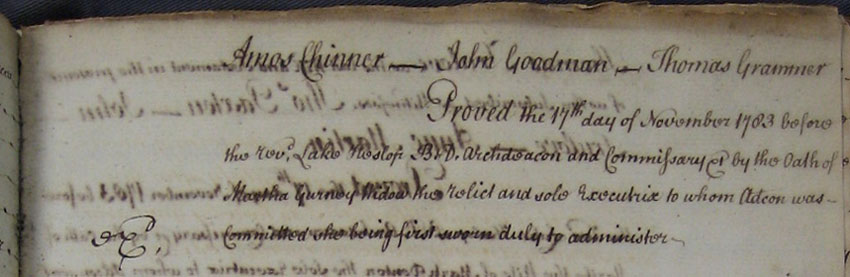 Amos Chinner — John Goodman — Thomas Grammer
Proved the 17th day of November 1783 before
the Revd. Luke Heslop B.D. Archdeacon and Commissary &c by the Oath of
Martha Gurney Widow the relict and sole Executrix to whom Adcon was —
Committed she being first sworn duly to administer —
exd.